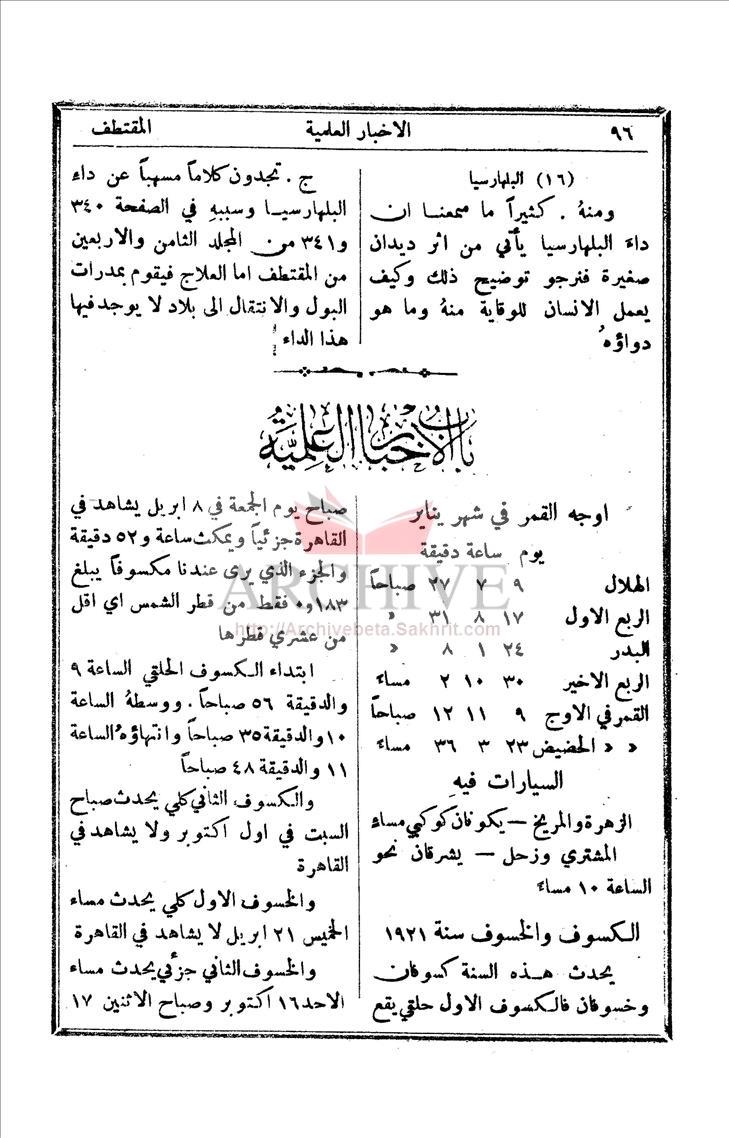 ٩٦ الاخبار العلمية المقتطف
(١٦) البلهارسيا
ومنهُ . كثيراً ما سمعنا ان
داء البلهارسيا يأتي من اثر ديدان
صغيرة فنرجو توضيح ذلك وكيف
يعمل الانسان للوقاية منهُ وما هو
دواؤهُ
ج . تجدون كلاماً مسهباً عن داء
البلهارسيا وسببهِ في الصفحة ٣٤٠
و٣٤١ من المجلد الثامن والاربعين
من المقتطف اما العلاج فيقوم بمدرات
البول والانتقال الى بلاد لا يوجد فيها
هذا الداء
باب الاخبار العلمية
اوجه القمر في شهر يناير
يوم ساعة دقيقة
الهلال ٩ ٧ ٢٧ صباحاً
الربع الاول ١٧ ٨ ٣١ «
البدر ٢٤ ١ ٨ «
الربع الاخير ٣٠ ١٠ ٢ مساءً
القمر في الاوج ٩ ١١ ١٢ صباحاً
« « الحضيض ٢٣ ٣ ٣٦ مساءً
السيارات فيهِ
الزهرة والمريخ – يكونان كوكبي مساءٍ
المشتري وزحل – يشرقان نحو
الساعة ١٠ مساءً
الكسوف والخسوف سنة ١٩٢١
يحدث هذه السنة كسوفان
وخسوفان فالكسوف الاول حلقي يقع
صباح يوم الجمعة في ٨ ابريل يشاهد في
القاهرة جزئياً ويمكث ساعة و٥٢ دقيقة
والجزء الذي يرى عندنا مكسوفاً يبلغ
٠٫١٨٣ فقط من قطر الشمس اي اقل
من عشري قطرها
ابتداء الكسوف الحلقي الساعة ٩
والدقيقة ٥٦ صباحاً . ووسطهُ الساعة
١٠ والدقيقة ٣٥ صباحاً وانتهاؤهُ الساعة
١١ والدقيقة ٤٨ صباحاً
والكسوف الثاني كلي يحدث صباح
السبت في اول اكتوبر ولا يشاهد في
القاهرة
والخسوف الاول كلي يحدث مساء
الخميس ٢١ ابريل لا يشاهد في القاهرة
والخسوف الثاني جزئي يحدث مساء
الاحد ١٦ اكتوبر وصباح الاثنين ١٧
ARCHIVE
http://Archivebeta.Sakhrit.com